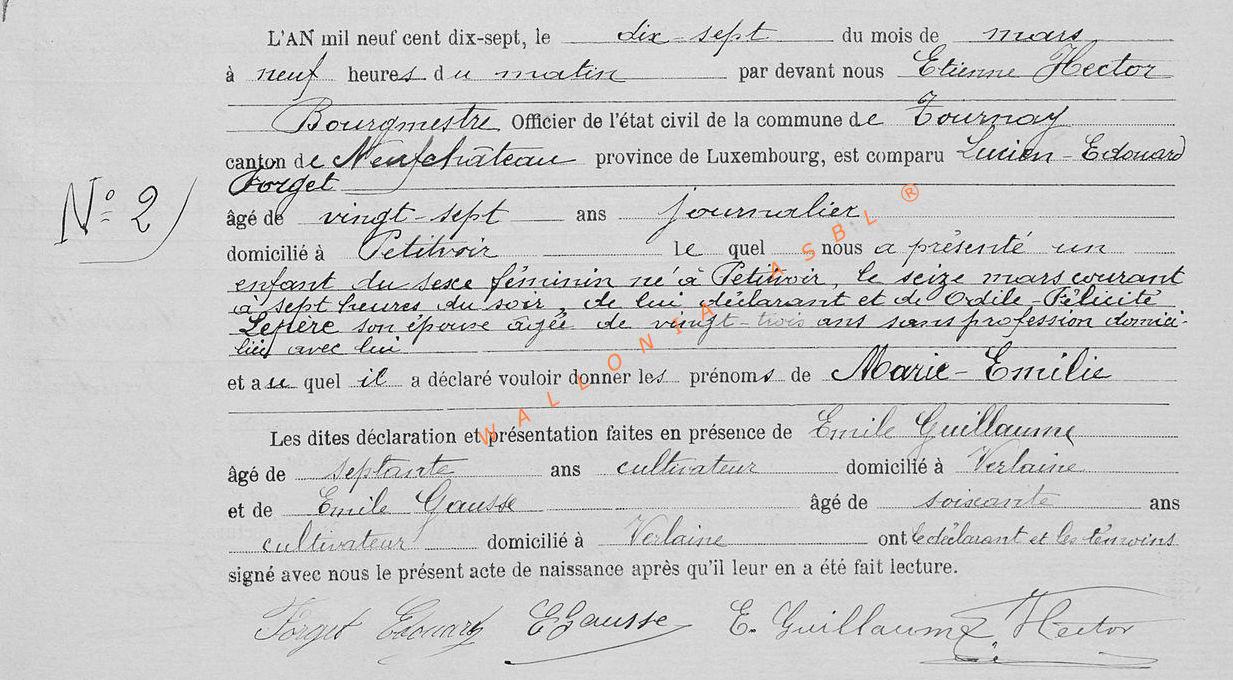 L'AN mil neuf cent dix-sept, le dix-sept du mois de mars
à neuf heures du matin par devant nous Etienne Hector
Bourgmestre Officier de l'état civil de la commune de Tournay
canton de Neufchâteau province de Luxembourg, est comparu Lucien-Edouard
Forget
âgé de vingt-sept ans journalier
domicilié à Petitvoir le quel nous a présenté un
enfant du sexe féminin né à Petitvoir, le seize mars courant
à sept heures du soir, de lui déclarant et de Odile-Félicité
Lepère son épouse âgée de vingt-trois ans sans profession domici-
liée avec lui
et au quel il a déclaré vouloir donner les prénoms de Marie-Emilie
Les dites déclaration et présentation faites en présence de Emile Guillaume
âgé de septante ans cultivateur domicilié à Verlaine
et de Emile Gausse âgé de soixante ans
cultivateur domicilié à Verlaine ont le déclarant et les témoins
signé avec nous le présent acte de naissance après qu'il leur en a été fait lecture.
Forget Edouard EGausse E. Guillaume Hector
N° 2
WALLONIA ASBL ®